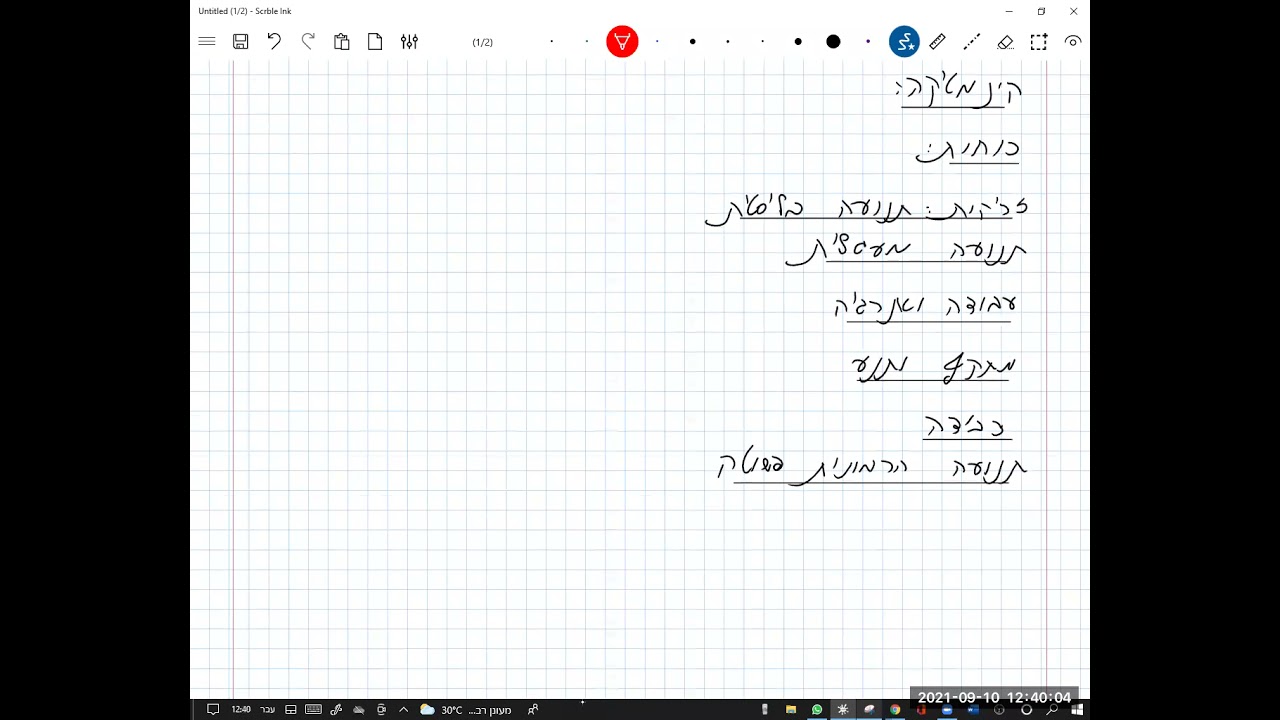 Untitled (1/2) - Scrble Ink
(1/2)
קינמטיקה:
כוחות:
זריקות: תנועה בליסטית
תנועה מעגלית
עבודה ואנרגיה
מתקף ותנע
כבידה
תנועה הרמונית פשוטה
2021-09-10 12:40:04
12:40 עבר 30°C מעונן רב...